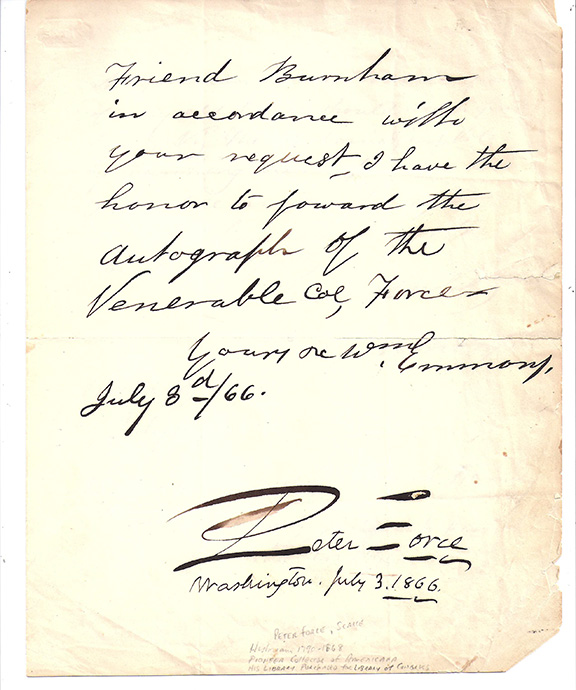 Friend Burnham
in accordance with
your request, I have the
honor to foward the
Autograph of the
Venerable Col, Force
Yours &c Wm. Emmons,
July 3d/66.
Peter Force
Washington. July 3. 1866.
Peter Force,
Historian, 1790-1868
Pioneer Collector of Americana
His Library Purchased the Library of Congress